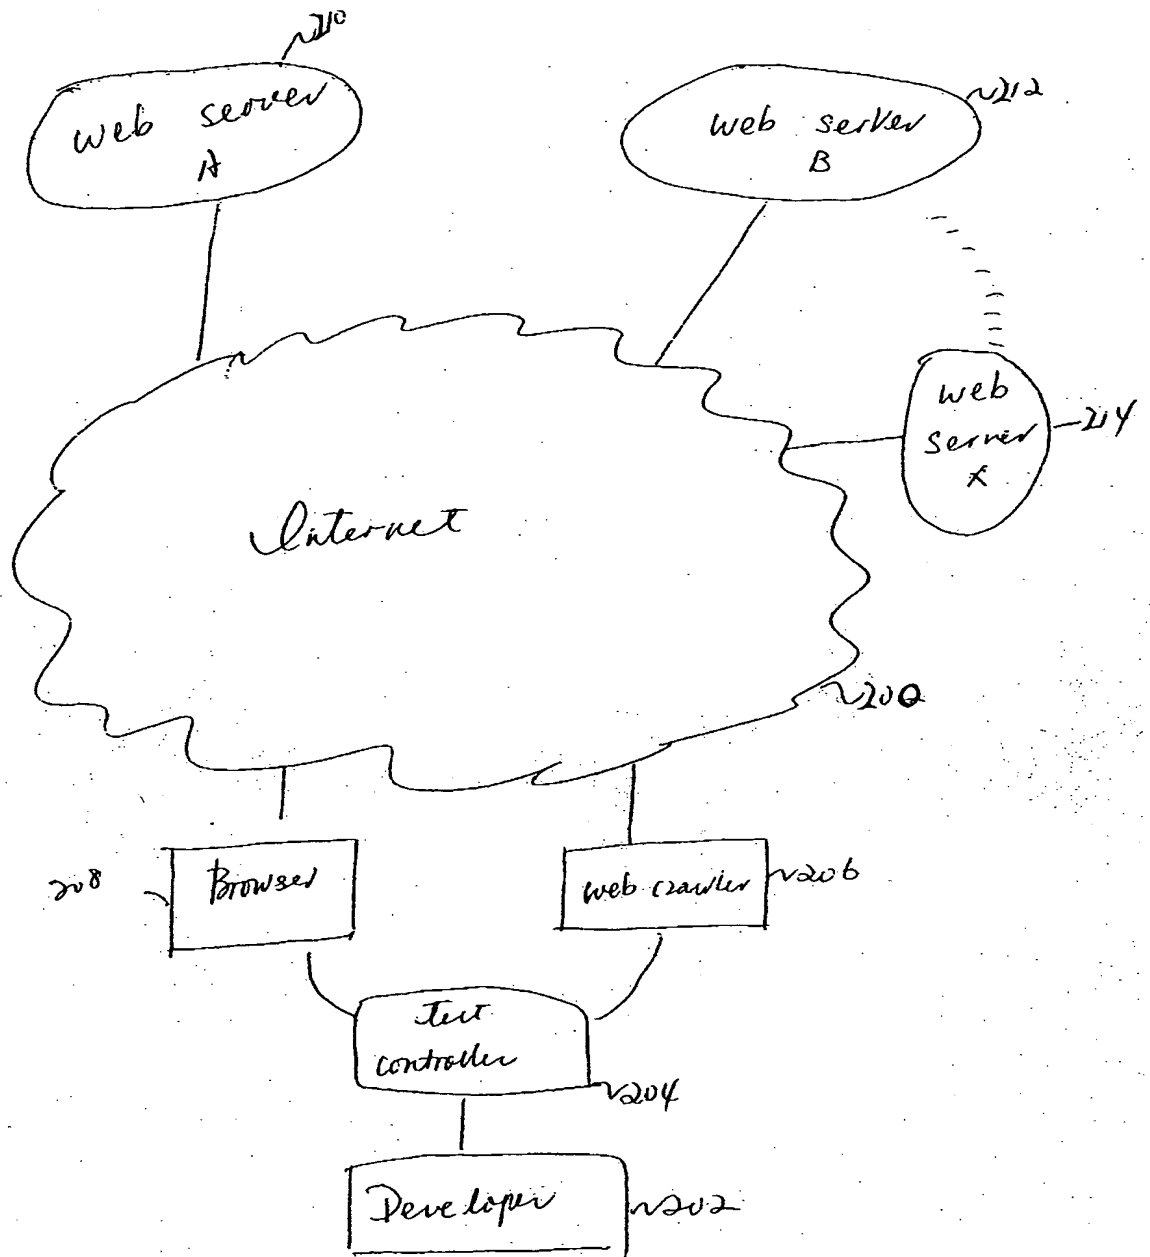 210
web server
A
212
web server
B
web
server
X
214
Internet
200
208
Browser
web crawler
206
Test
controller
204
Developer
202